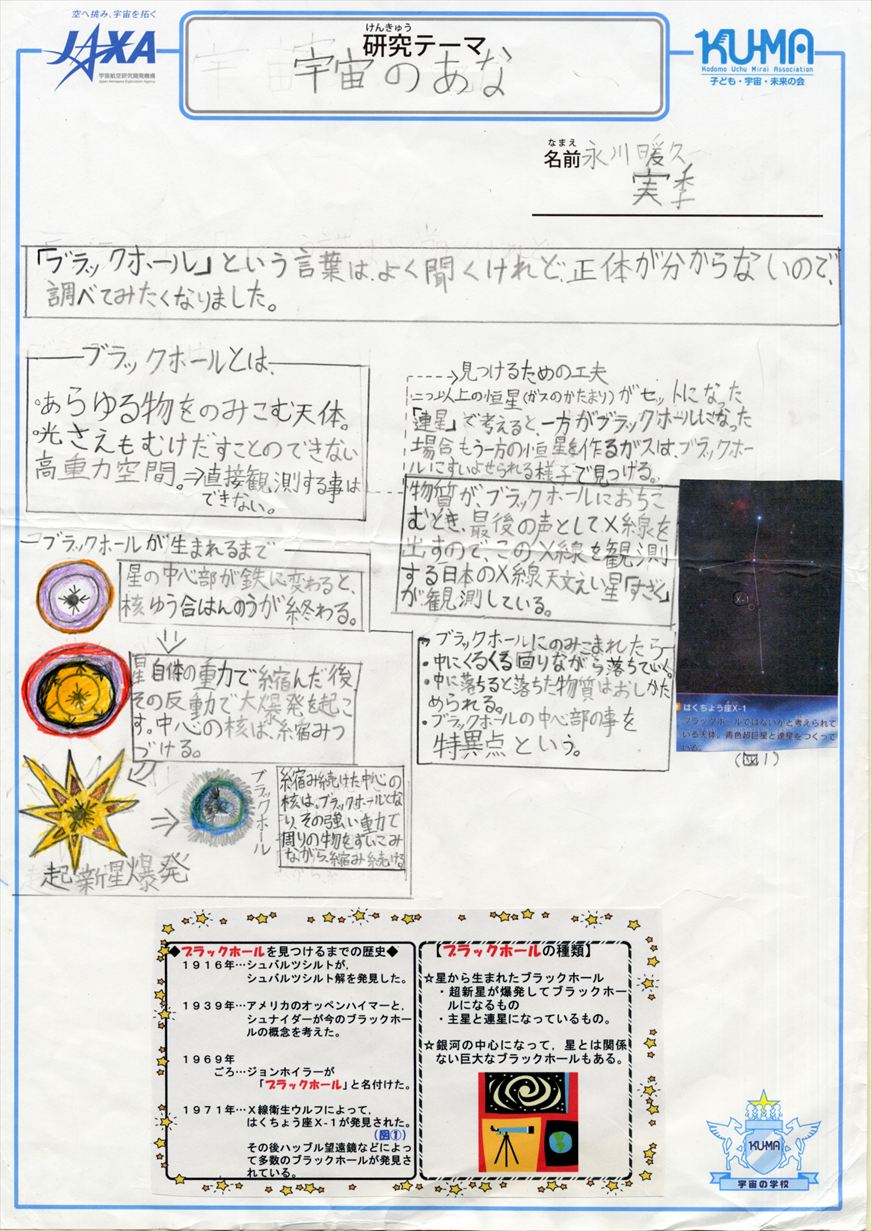 空へ挑み、宇宙を拓く
JAXA
宇宙航空研究開発機構
Japan Aerospace Exploration Agency
けんきゅう
研究テーマ
宇宙のあな
KU-MA
Kodomo Uchu Mirai Association
子ども・宇宙・未来の会
なまえ
名前 永川暖久
実季
「ブラックホール」という言葉は、よく聞くけれど、正体が分からないので、
調べてみたくなりました。
ブラックホールとは、
・あらゆる物をのみこむ天体。
・光さえもむけだすことのできない
高重力空間。⇒直接観測する事は
できない。
見つけるための工夫
二つ以上の恒星(ガスのかたまり)がセットになった
「連星」で考えると、一方がブラックホールになった
場合もう一方の恒星を作るガスは、ブラックホー
ルにすいよせられる様子で見つける。
物質が、ブラックホールにおちこ
むとき、最後の声としてX線を
出すので、このX線を観測
する日本のX線天文えい星「すざく」
が観測している。
ブラックホールが生まれるまで
星の中心部が鉄に変わると、
核ゆう合はんのうが終わる。
星自体の重力で縮んだ後
その反動で大爆発を起こ
す。中心の核は、縮みつ
づける。
起新星爆発
ブラックホール
縮み続けた中心の
核は、ブラックホールとな
り、その強い重力で
周りの物をすいこみ
ながら、縮み続ける
・ブラックホールにのみこまれたら
・中にくるくる回りながら落ちていく。
・中に落ちると落ちた物質はおしかた
められる。
・ブラックホールの中心部の事を
特異点という。
X-1
はくちょう座X-1
ブラックホールではないかと考えられて
いる天体。青色超巨星と連星をつくって
いる。
(図1)
◆ブラックホールを見つけるまでの歴史◆
1916年…シュバルツシルトが,
シュバルツシルト解を発見した。
1939年…アメリカのオッペンハイマーと,
シュナイダーが今のブラックホー
ルの概念を考えた。
1969年
ごろ…ジョンホイラーが
「ブラックホール」と名付けた。
1971年…X線衛生ウルフによって,
はくちょう座X-1が発見された。
(図①)
その後ハッブル望遠鏡などによっ
て多数のブラックホールが発見さ
れている。
【ブラックホールの種類】
☆星から生まれたブラックホール
・超新星が爆発してブラックホー
ルになるもの
・主星と連星になっているもの。
☆銀河の中心になって,星とは関係
ない巨大なブラックホールもある。
KU-MA
宇宙の学校